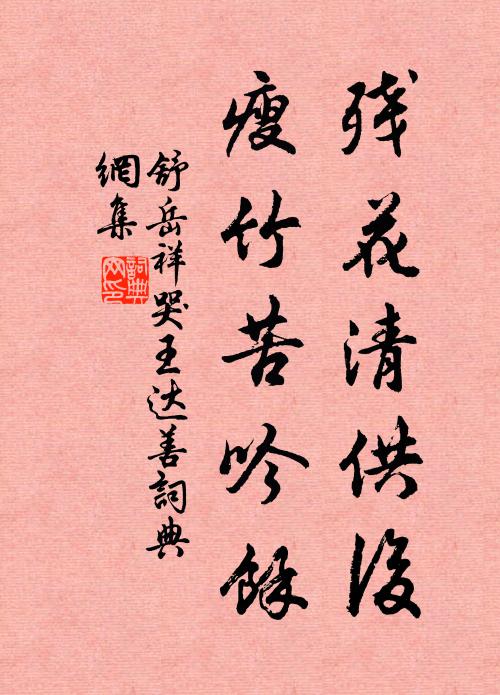 残花清供後
瘦竹苦吟餘
舒岳祥哭王达善詞典
網集
詞典
网印